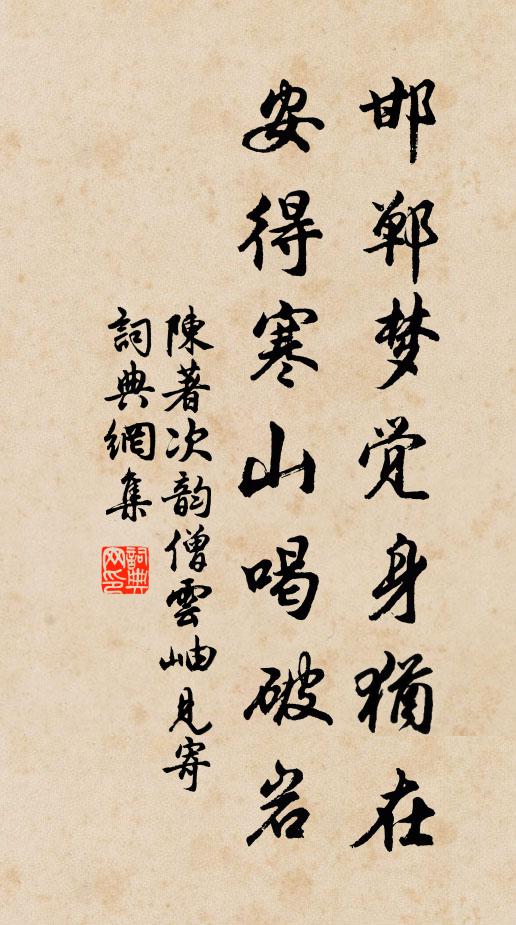 邯郸梦觉身猶在
安得寒山喝破岩
陳著次韵僧雲岫見寄
詞典網集
詞典網印